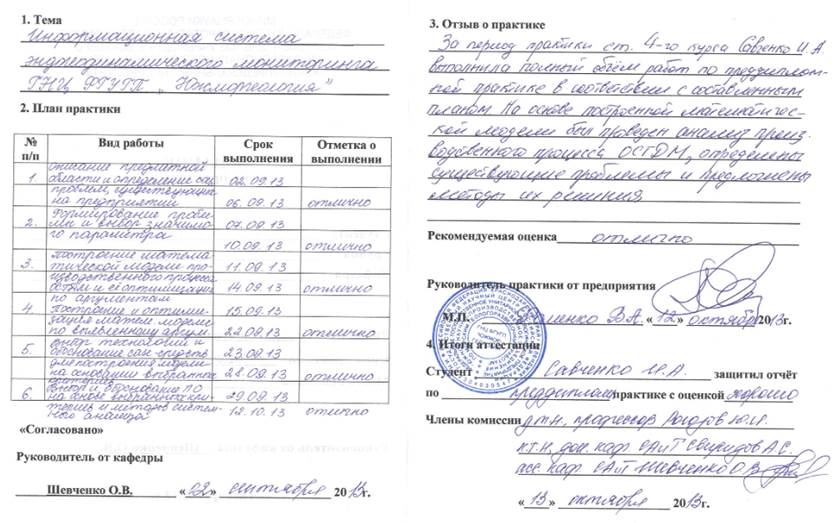 1. Тема
Информационная система
эндогединамического мониторинга
ГНЦ ФГУГП „Южморгеология"
2. План практики
№ п/п Вид работы Срок выполнения Отметка о выполнении
1. описание предметной
области и определение 02.09.13
проблем, существующих
на предприятии 06.09.13 отлично
2. Формирование пробле-
мы и выбор значимо- 07.09.13
го параметра
10.09.13 отлично
3. построение матема-
тической модели про- 11.09.13
изводственного процесса
и её оптимизация 14.09.13 отлично
по аргументам
4. Построение и оптими- 15.09.13
зация матем. модели
по 22.09.13 отлично
5. выбор технологий и
обоснование 23.09.13
для построения модели
на основании выбранных 28.09.13 отлично
критериев
6. Выбор и обоснование ПО
на основе выбранных кри- 29.09.13
териев и методов систем- 12.10.13 отлично
ного анализа
«Согласовано»
Руководитель от кафедры
Шевченко О.В. «22» сентября 2013г.
3. Отзыв о практике
За период практики ст. 4-го курса Савченко И.А.
выполнила полный объём работ по преддиплом-
ной практике в соответствии с составленным
планом. На основе построенной математичес-
кой модели был проведен анализ произ-
водственного процесса ОСГДМ, определены
существующие проблемы и предложены
методы их решения
Рекомендуемая оценка отлично
Руководитель практики от предприятия
М.П. В.А. «12» октября 2013г.
4. Итоги аттестации
Студент Савченко И.А. защитил отчёт
по преддиплом. практике с оценкой хорошо
Члены комиссии д.т.н, профессор Рогозов Ю.И.
к.т.н, доц. каф САиТ Свиридов А.С.
асс. каф САиТ Шевченко О.В.
«13» октября 2013г.